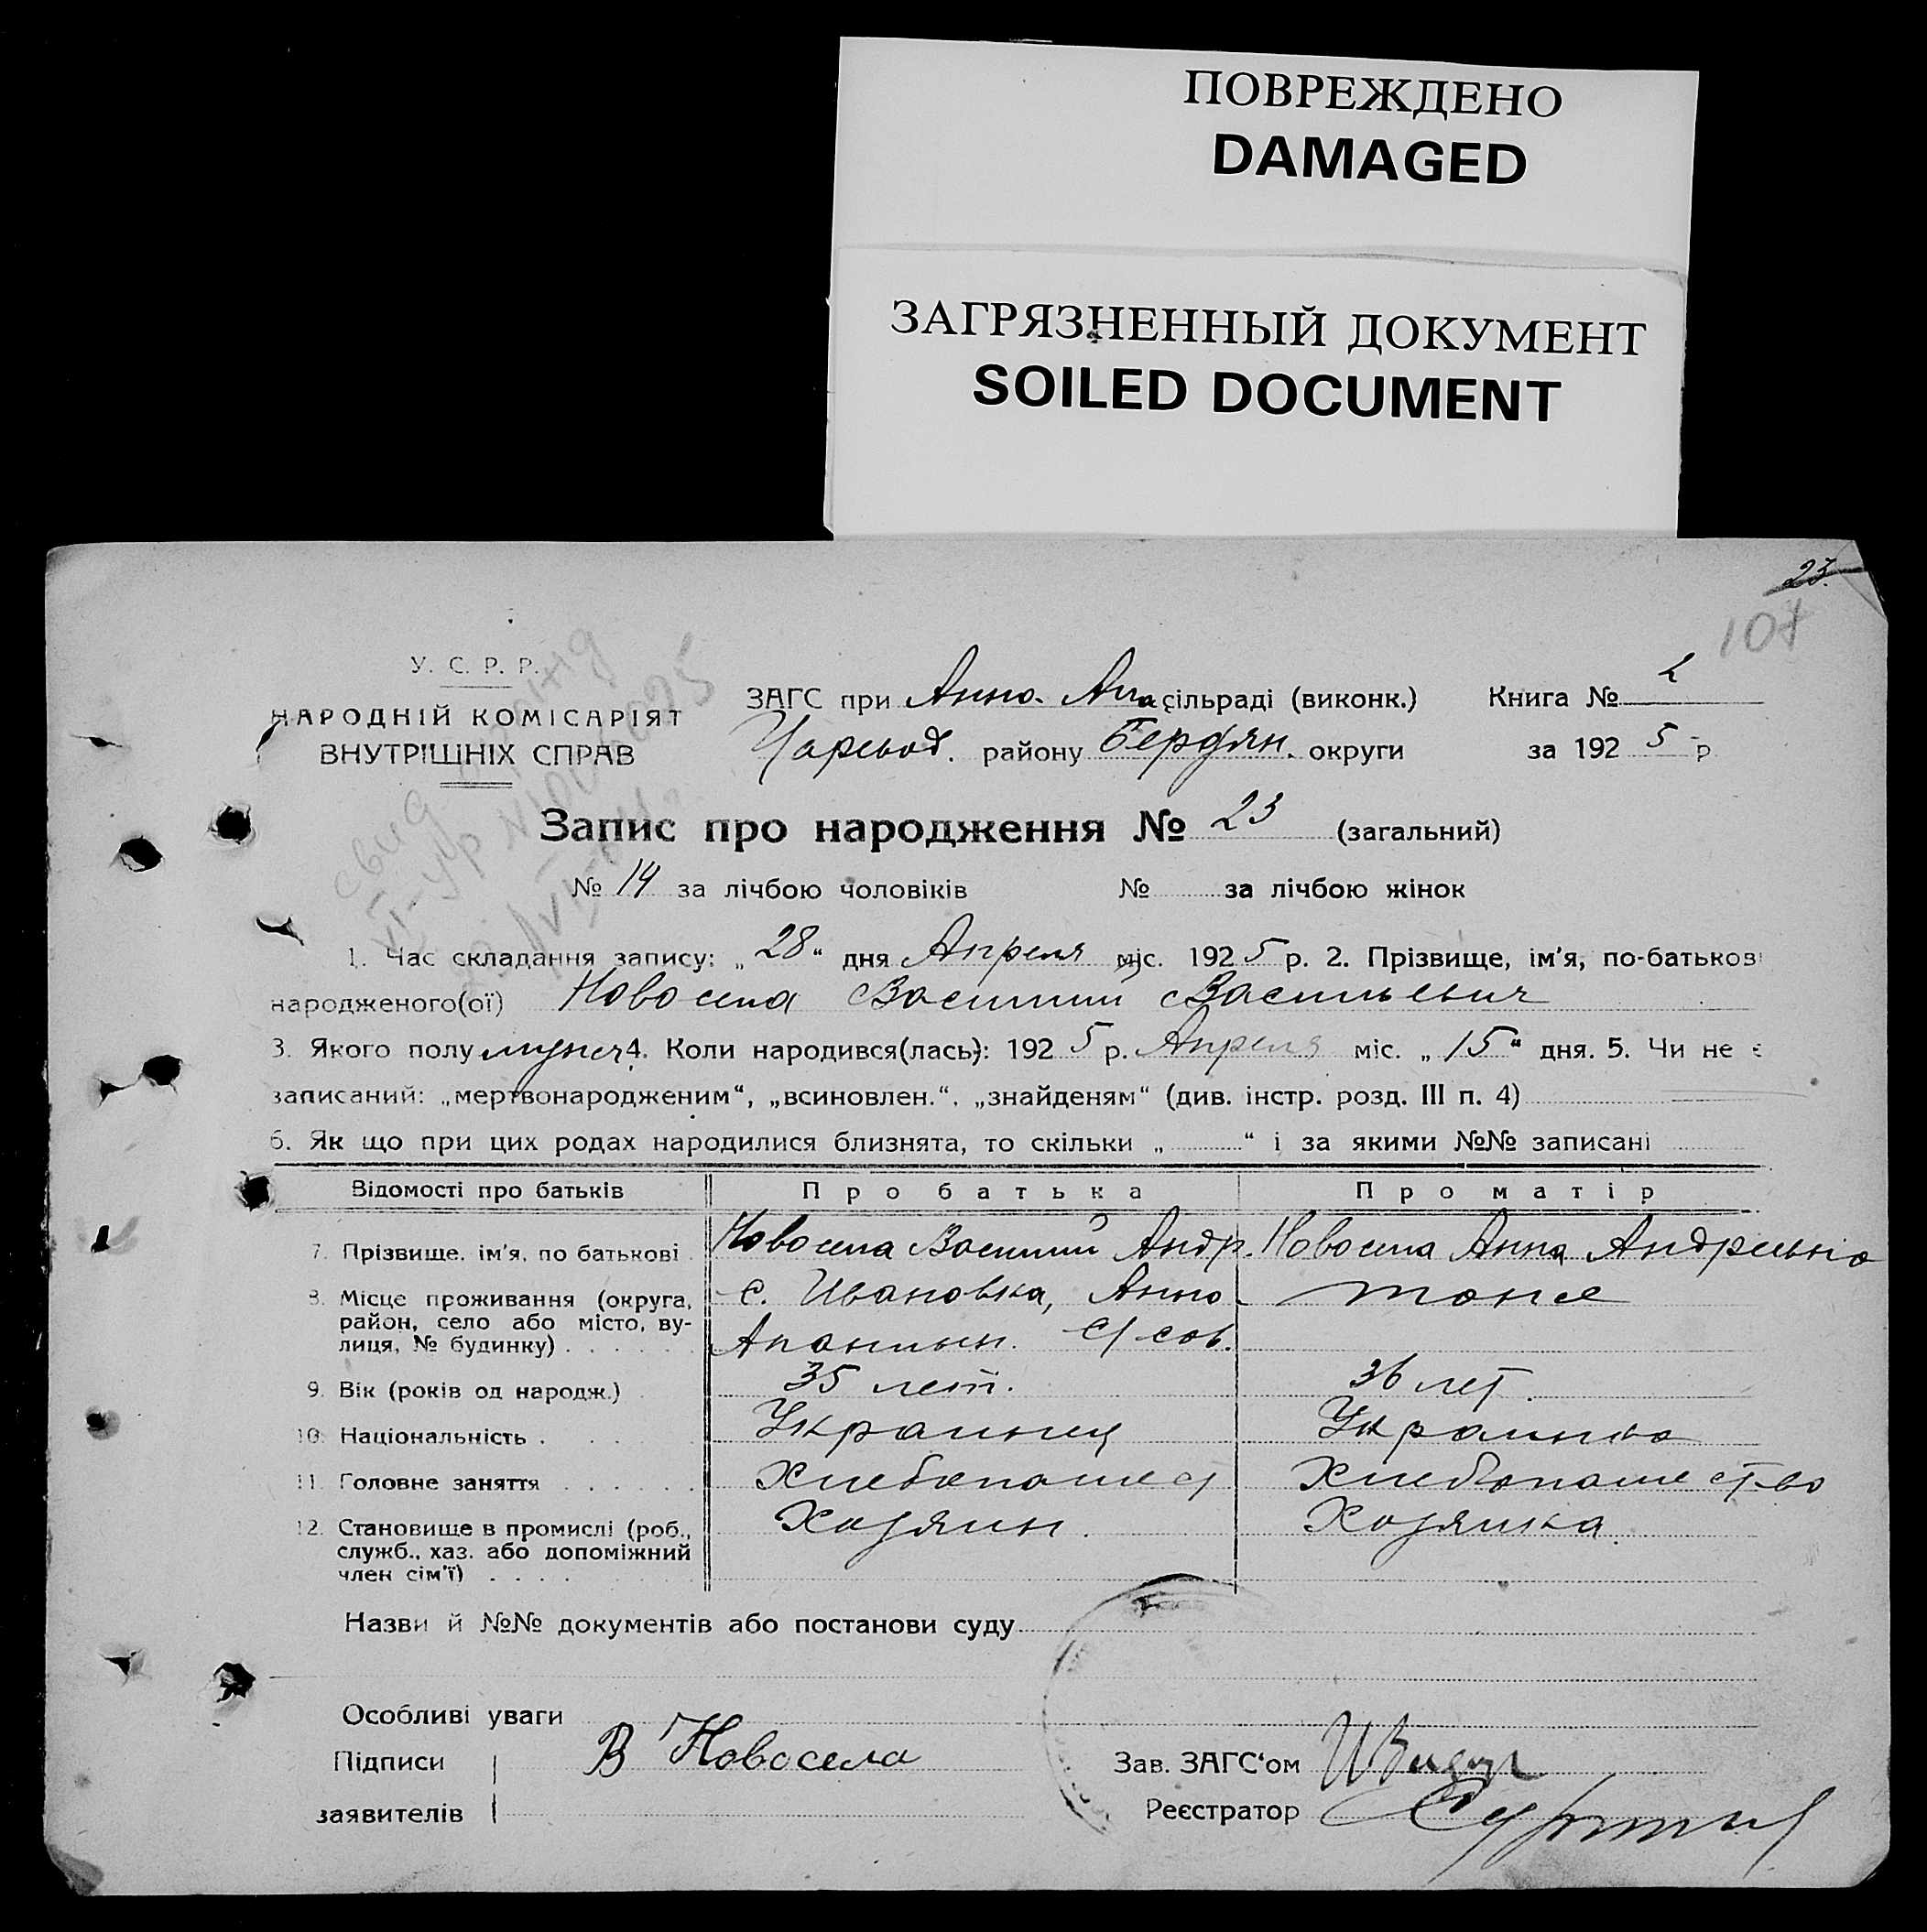 ПОВРЕЖДЕНО
DAMAGED
ЗАГРЯЗНЕННЫЙ ДОКУМЕНТ
SOILED DOCUMENT
23.
107
У. С. Р. Р.
НАРОДНІЙ КОМІСАРІЯТ
ВНУТРІШНІХ СПРАВ
ЗАГС при Анно. Апа сільраді (виконк.) Книга № 2
Царевод. району Бердян. округи за 192 5 р
Запис про народження № 23 (загальний)
№ 14 за лічбою чоловіків № за лічбою жінок
1. Час складання запису: „ 28 “ дня Апреля міс. 192 5 р. 2. Прізвище, ім'я, по-батькові
народженого(ої) Новосела Василий Васильевич
3. Якого полу мужск 4. Коли народився(лась): 192 5 р. Апреля міс. „ 15 “ дня. 5. Чи не є
записаний: „мертвонародженим“, „всиновлен.“. „знайденям“ (див. інстр. розд. III п. 4)
6. Як що при цих родах народилися близнята, то скільки „ “ і за якими №№ записані
Відомості про батьків Про батька Про матір
7. Прізвище, ім'я, по батькові Новосела Василий Андр. Новосела Анна Андреевна
8. Місце проживання (округа, с. Ивановка, Анно- тоже
район, село або місто, ву-
лиця, № будинку) Апанлын. с/сов.
9. Вік (років од народж.) 35 лет. 36 лет.
10. Національність Украинец Украинка
11. Головне заняття Хлебопашест Хлебопашество
12. Становище в промислі (роб., Хозяин. Хозяйка
служб., хаз. або допоміжний
член сім'ї)
Назви й №№ документів або постанови суду
Особливі уваги
Підписи В Новосела Зав. ЗАГС'ом
заявителів Реєстратор